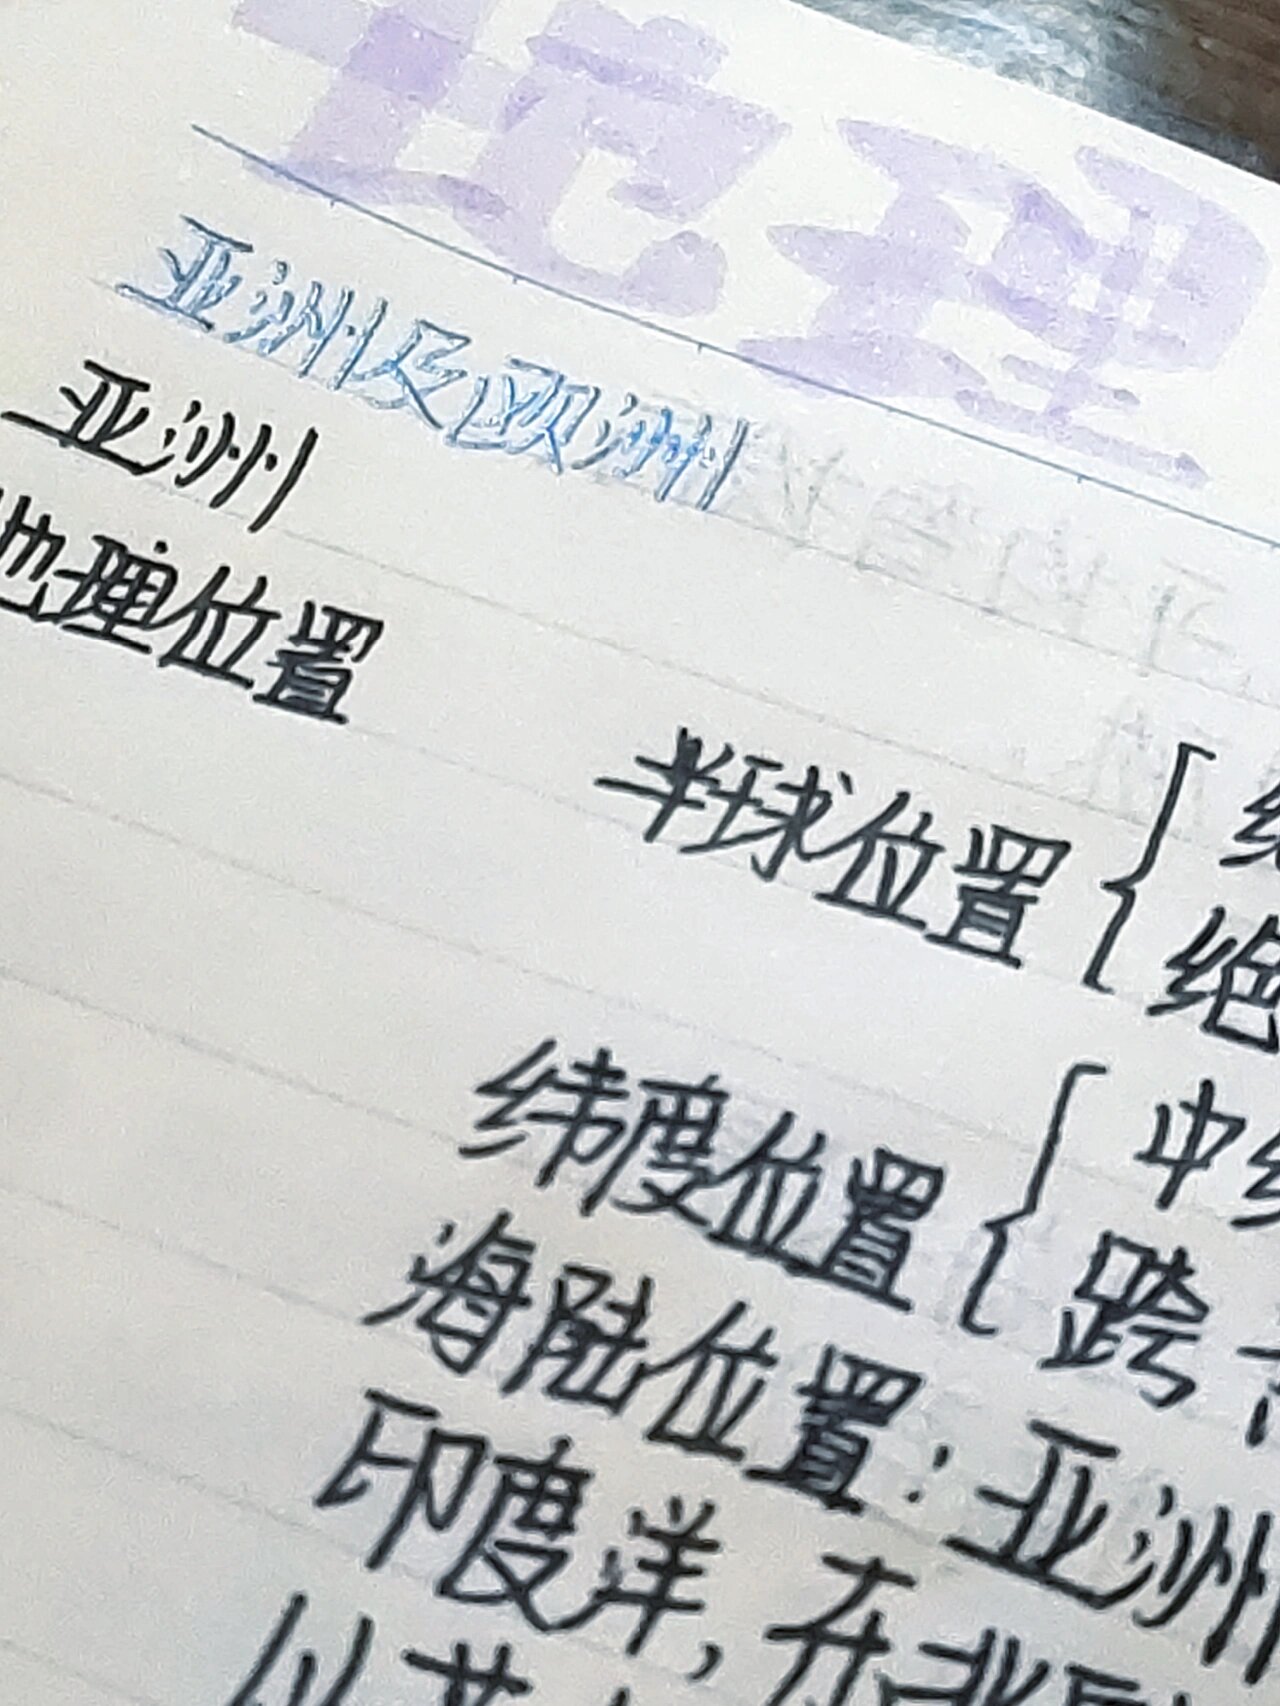 地理
亚洲及欧洲
亚洲
地理位置
半球位置
绝
纬度位置 { 中纬
跨
海陆位置：亚洲
印度洋，在北
以苏